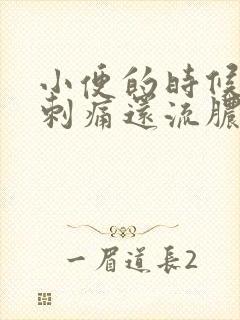 小便的時候
刺痛還流膿
一眉道長2